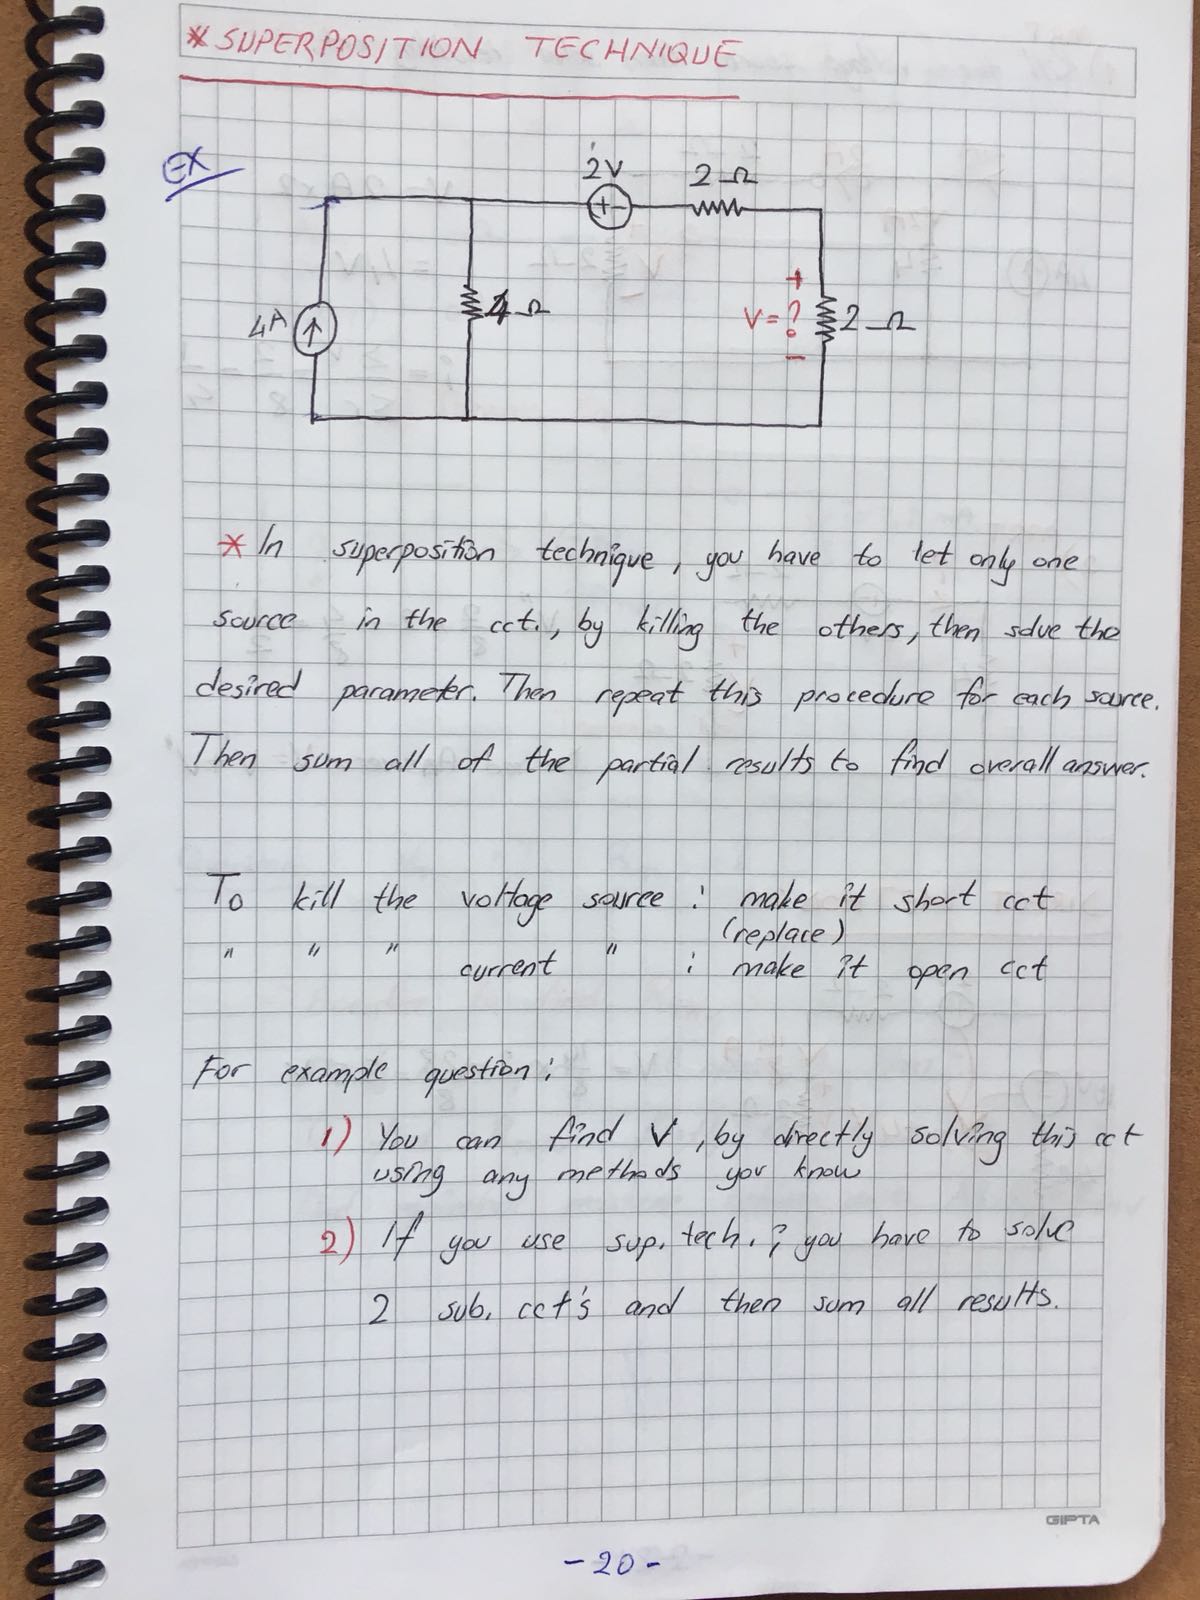 * SUPERPOSITION TECHNIQUE
EX
2V
2 Ω
+ -
4A
4 Ω
+
V = ?
-
2 Ω
* In superposition technique, you have to let only one
source in the cct., by killing the others, then solve the
desired parameter. Then repeat this procedure for each source.
Then sum all of the partial results to find overall answer.
To kill the voltage source : make it short cct
(replace)
" " " current " : make it open cct
For example question :
1) You can find V, by directly solving this cct
using any methods you know
2) If you use sup. tech. ; you have to solve
2 sub. cct's and then sum all results.
GIPTA
- 20 -